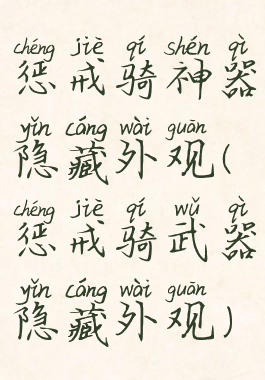 chéng jiè qí shén qì
惩戒骑神器
yǐn cáng wài guān
隐藏外观(
chéng jiè qí wǔ qì
惩戒骑武器
yǐn cáng wài guān
隐藏外观)